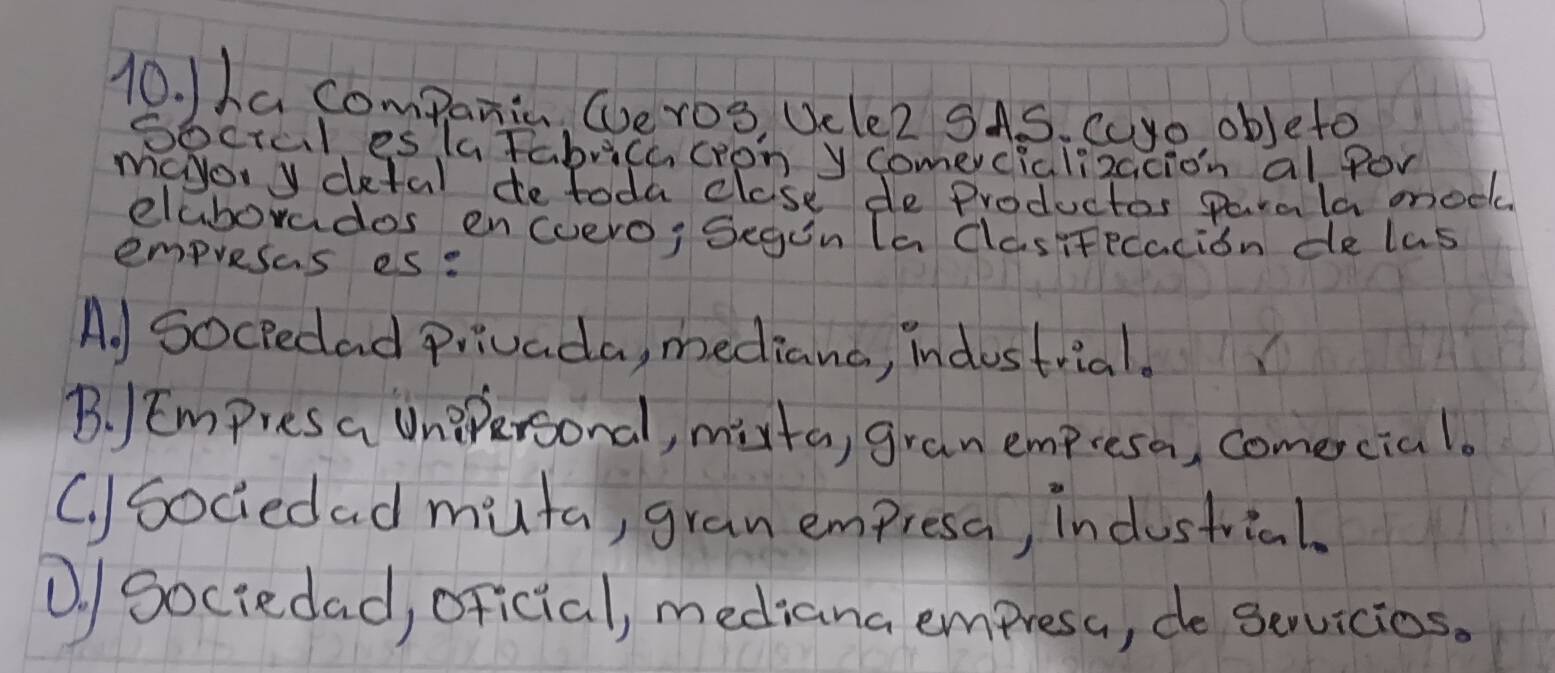 10.) La Compania Cueros, Velez SAS. Cuyo objeto
Social es la Fabricacion y comercialización al Por
mayor y detal de toda clase de Productos para la moda
elaborados en cuero; Según la Clasificación de las
empresas es:
A.) Sociedad privada, mediana, industrial.
B.) Empresa Unipersonal, mixta, gran empresa, comercial.
C.) Sociedad mixta, gran empresa, industrial.
D.) Sociedad, oficial, mediana empresa, de servicios.